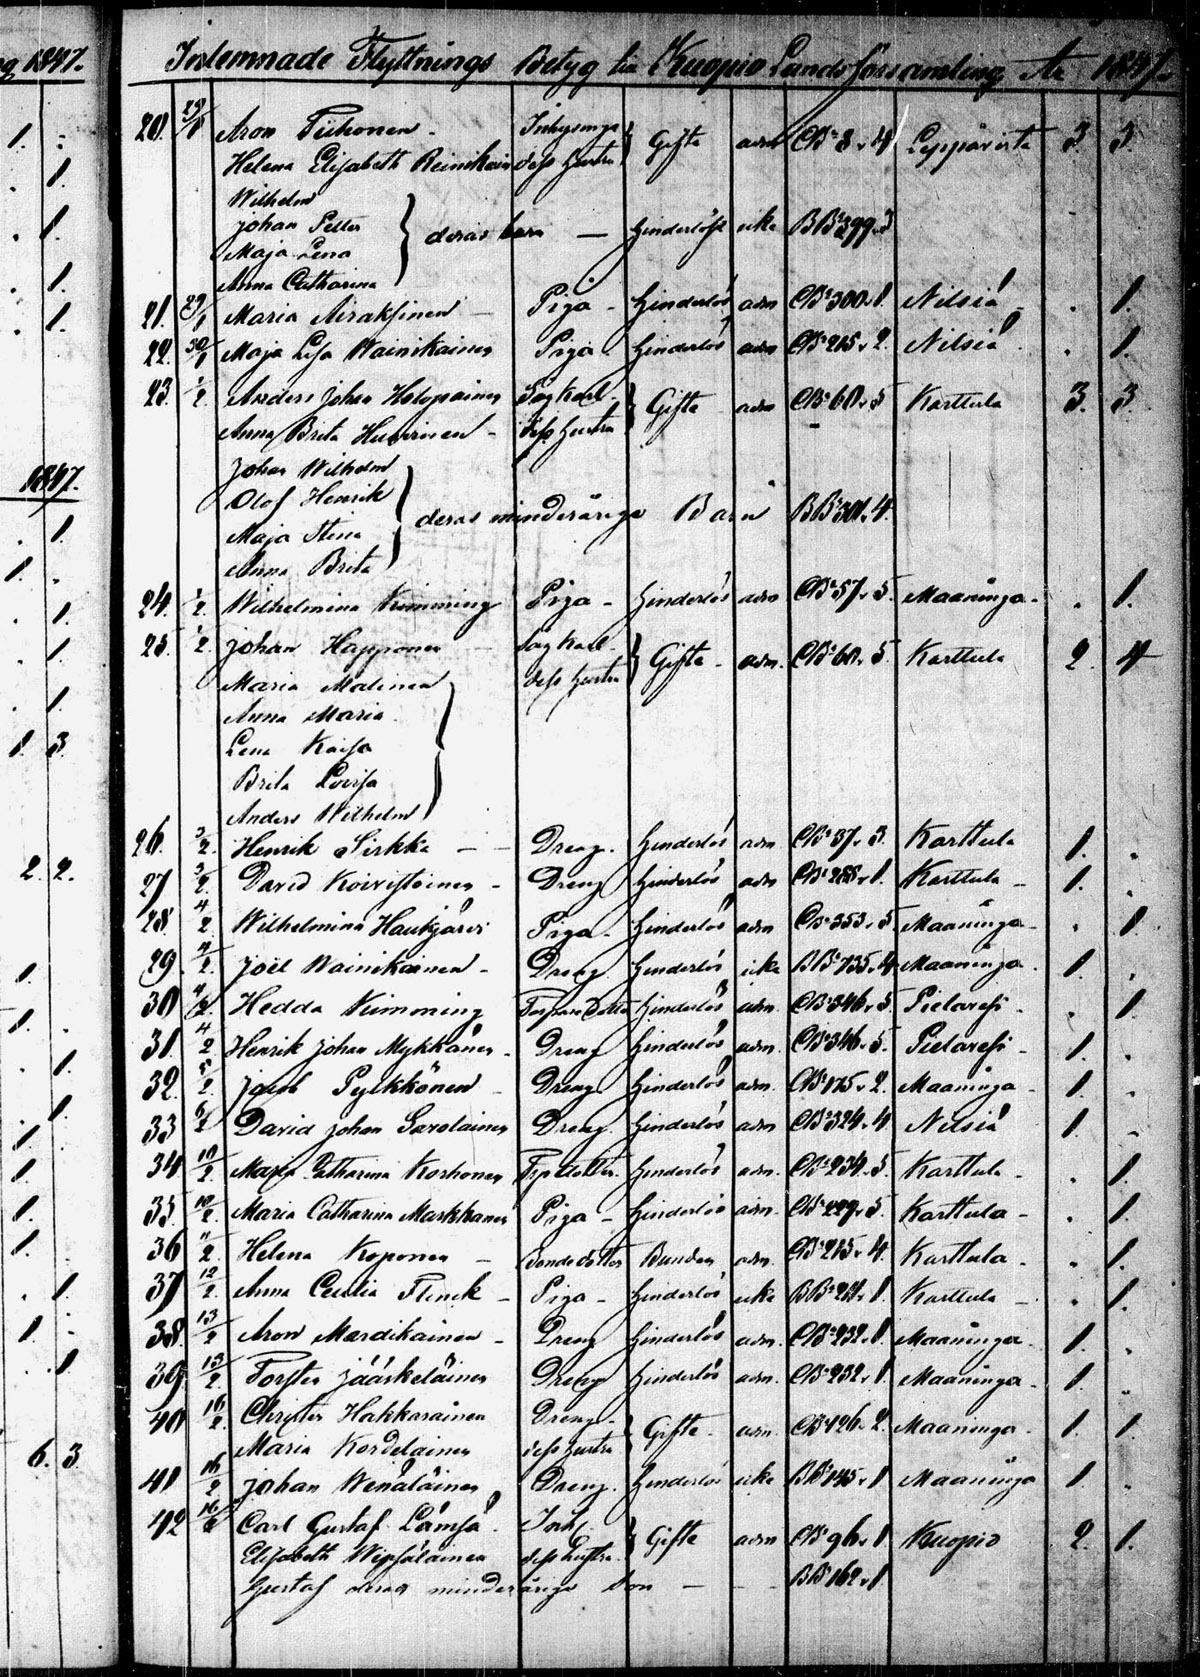 Inlemnade Flyttnings Betyg til Kuopio Landsförsamling År 1847.
20. 29/1 Aron Tiihonen - Inhysinge Gifte adm CB: 8. v. 4. Leppävirta 3. 3.
Helena Elisabeth Reinikain dess hustru
Wilhelm
Johan Petter deras barn — hinderlöst icke BB: 299. v. 3
Maja Lena
Anna Catharina
21. 29/1 Maria Airaksinen — Piga - hinderlös adm CB: 300. v. 1. Nilsiä . 1.
22. 30/1 Maja Lisa Wainikainen Piga - hinderlös adm CB: 215. v. 2. Nilsiä . 1.
23. 1/2. Anders Johan Holopainen Sågkarl - Gifte adm CB: 60. v. 5. Karttula 3. 3.
Anna Brita Huurinen - dess hustru
Johan Wilhelm
Olof Henrik deras minderåriga Barn BB: 301. v. 4.
Maja Stina
Anna Brita
24. 1/2. Wilhelmina Kimming Piga - hinderlös adm CB: 57. v. 5. Maaninga - . 1.
25. 1/2. Johan Happonen - Sågkarl - Gifte - adm. CB: 60. v. 5. Karttula 2. 4
Maria Malinen dess hustru
Anna Maria
Lena Kaisa
Brita Lovisa
Anders Wilhelm
26. 3/2. Henrik Sirkka — - Dreng. hinderlös adm CB: 37. v. 3. Karttula 1. .
27 3/2. David Koivistoinen - Dreng hinderlös adm CB: 288. v. 1. Karttula - 1. .
28. 4/2 Wilhelmina Haukjärvi Piga - hinderlös adm CB: 353. v. 5. Maaninga - . 1
29. 4/2. Joël Wainikainen - Dreng. hinderlös icke BB: 735. v. 4. Maaninga . 1. .
30 4/2. Hedda Kimming Torpare dotter hinderlös adm. CB: 346. v. 5. Pielavesi . 1
31. 4/2 Henrik Johan Mykkänen - Dreng hinderlös adm. CB: 346. v. 5. Pielavesi - 1. .
32. 5/2. Jacob Pylkkönen - Dreng hinderlös adm. CB: 175. v. 2. Maaninga - 1. .
33 6/2 David Johan Savolainen Dreng. hinderlös adm CB: 324. v. 4. Nilsiä 1. .
34 10/2 Maria Catharina Korhonen hinderlös adm. CB: 234. v. 5. Karttula - . 1.
35. 10/2. Maria Catharina Markkanen Piga - hinderlös adm. CB: 229. v. 5. Karttula - . 1.
36 11/2. Helena Koponen — Bondedotter Bunden adm. CB: 215. v. 4. Karttula - . 1.
37 12/2. Anna Cecilia Flinck - Piga - hinderlös icke BB: 211. v. 1. Karttula - . 1.
38. 13/2 Aron Mardikainen - Dreng hinderlös adm. CB: 232. v. 1. Maaninga - 1. .
39. 13/2. Torsten Jääskeläinen Dreng hinderlös adm. CB: 232. v. 1. Maaninga - 1. .
40 16/2. Christer Hakkarainen Dreng - Gifte - adm. CB: 426. v. 2. Maaninga . 1. 1.
Maria Kordelainen dess hustru
41 16/2 Johan Wenäläinen Dreng. hinderlös icke BB: 145. v. 1 Maaninga 1 .
42 16/2 Carl Gustaf Lämsä - Inh. Gifte adm CB: 96. v. 1 Kuopio 2. 1.
Elisabeth Wepsäläinen dess hustru
Gustaf deras minderårige son — - - BB: 162. v. 1.
1847.
1847.
2. 2.
6. 3.